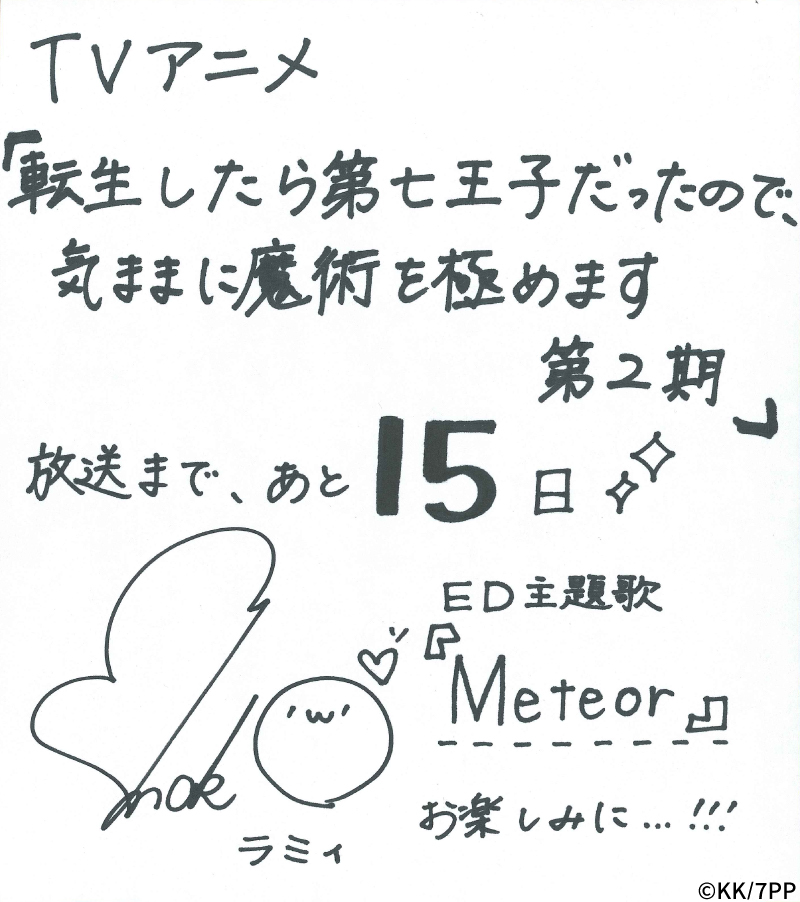 TVアニメ
「転生したら第七王子だったので、
気ままに魔術を極めます
第2期」
放送まで、あと15日
ED主題歌
『Meteor』
お楽しみに…!!!
ラミィ
©KK/7PP